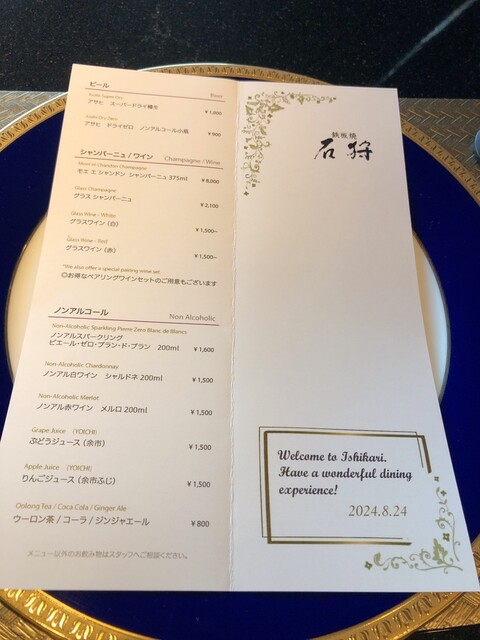 ビール Beer
Asahi Super Dry
アサヒ スーパードライ樽生 ¥1,000
Asahi Dry Zero
アサヒ ドライゼロ ノンアルコール小瓶 ¥900
シャンパーニュ / ワイン Champagne / Wine
Moët et Chandon Champagne
モエ エ シャンドン シャンパーニュ 375ml ¥8,000
Glass Champagne
グラス シャンパーニュ ¥2,100
Glass Wine - White
グラスワイン (白) ¥1,500~
Glass Wine - Red
グラスワイン (赤) ¥1,500~
*We also offer a special pairing wine set.
◎お得なペアリングワインセットのご用意もございます
ノンアルコール Non Alcoholic
Non-Alcoholic Sparkling Pierre Zéro Blanc de Blancs
ノンアルスパークリング
ピエール・ゼロ・ブラン・ド・ブラン 200ml ¥1,600
Non-Alcoholic Chardonnay
ノンアル白ワイン シャルドネ 200ml ¥1,500
Non-Alcoholic Merlot
ノンアル赤ワイン メルロ 200ml ¥1,500
Grape Juice (YOICHI)
ぶどうジュース (余市) ¥1,500
Apple Juice (YOICHI)
りんごジュース (余市ふじ) ¥1,500
Oolong Tea / Coca Cola / Ginger Ale
ウーロン茶 / コーラ / ジンジャエール ¥800
メニュー以外のお飲み物はスタッフへご相談ください。
鉄板焼
石狩
Welcome to Ishikari.
Have a wonderful dining
experience!
2024.8.24